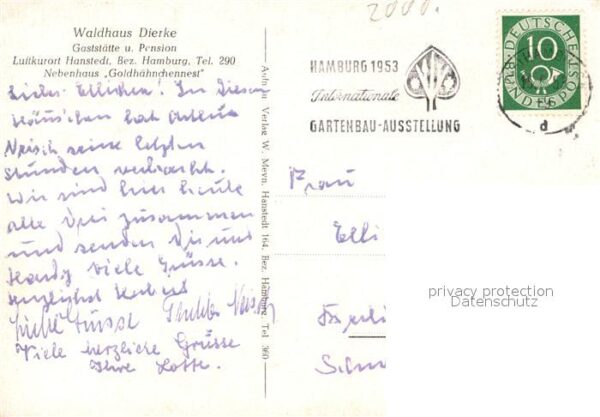 2000.
Waldhaus Dierke
Gaststätte u. Pension
Luftkurort Hanstedt, Bez. Hamburg, Tel. 290
Nebenhaus „Goldhähnchennest"
Liebes Ellichen! In diesem
Häuschen hat
seine letzten
Stunden verbracht.
Wir sind hier heute
alle drei zusammen
und senden Dir und
viele Grüsse.
herzlichst
Viele herzliche Grüsse
Ihre Lotte.
Verlag W. Meyn, Hanstedt 164, Bez. Hamburg Tel 360
HAMBURG 1953
Internationale
GARTENBAU-AUSSTELLUNG
DEUTSCHE
BUNDESPOST
10
d
Frau
Elli
Berli
privacy protection
Datenschutz